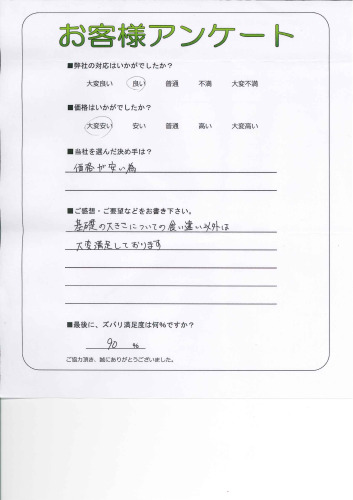 お客様アンケート
■弊社の対応はいかがでしたか？
大変良い 良い 普通 不満 大変不満
■価格はいかがでしたか？
大変安い 安い 普通 高い 大変高い
■当社を選んだ決め手は？
価格が安い為
■ご感想・ご要望などをお書き下さい。
基礎の大きさについての食い違い以外は
大変満足しております
■最後に、ズバリ満足度は何％ですか？
90 ％
ご協力頂き、誠にありがとうございました。